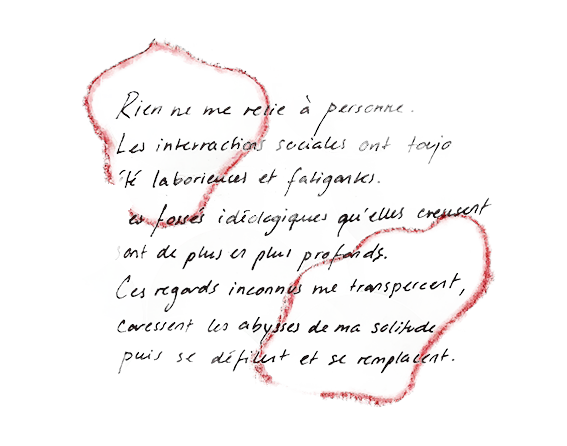 Rien ne me relie à personne.
Les interractions sociales ont toujo
été laborieuses et fatigantes.
es fossés idéologiques qu'elles creusent
sont de plus en plus profonds.
Ces regards inconnus me transpercent,
caressent les abysses de ma solitude
puis se défilent et se remplacent.